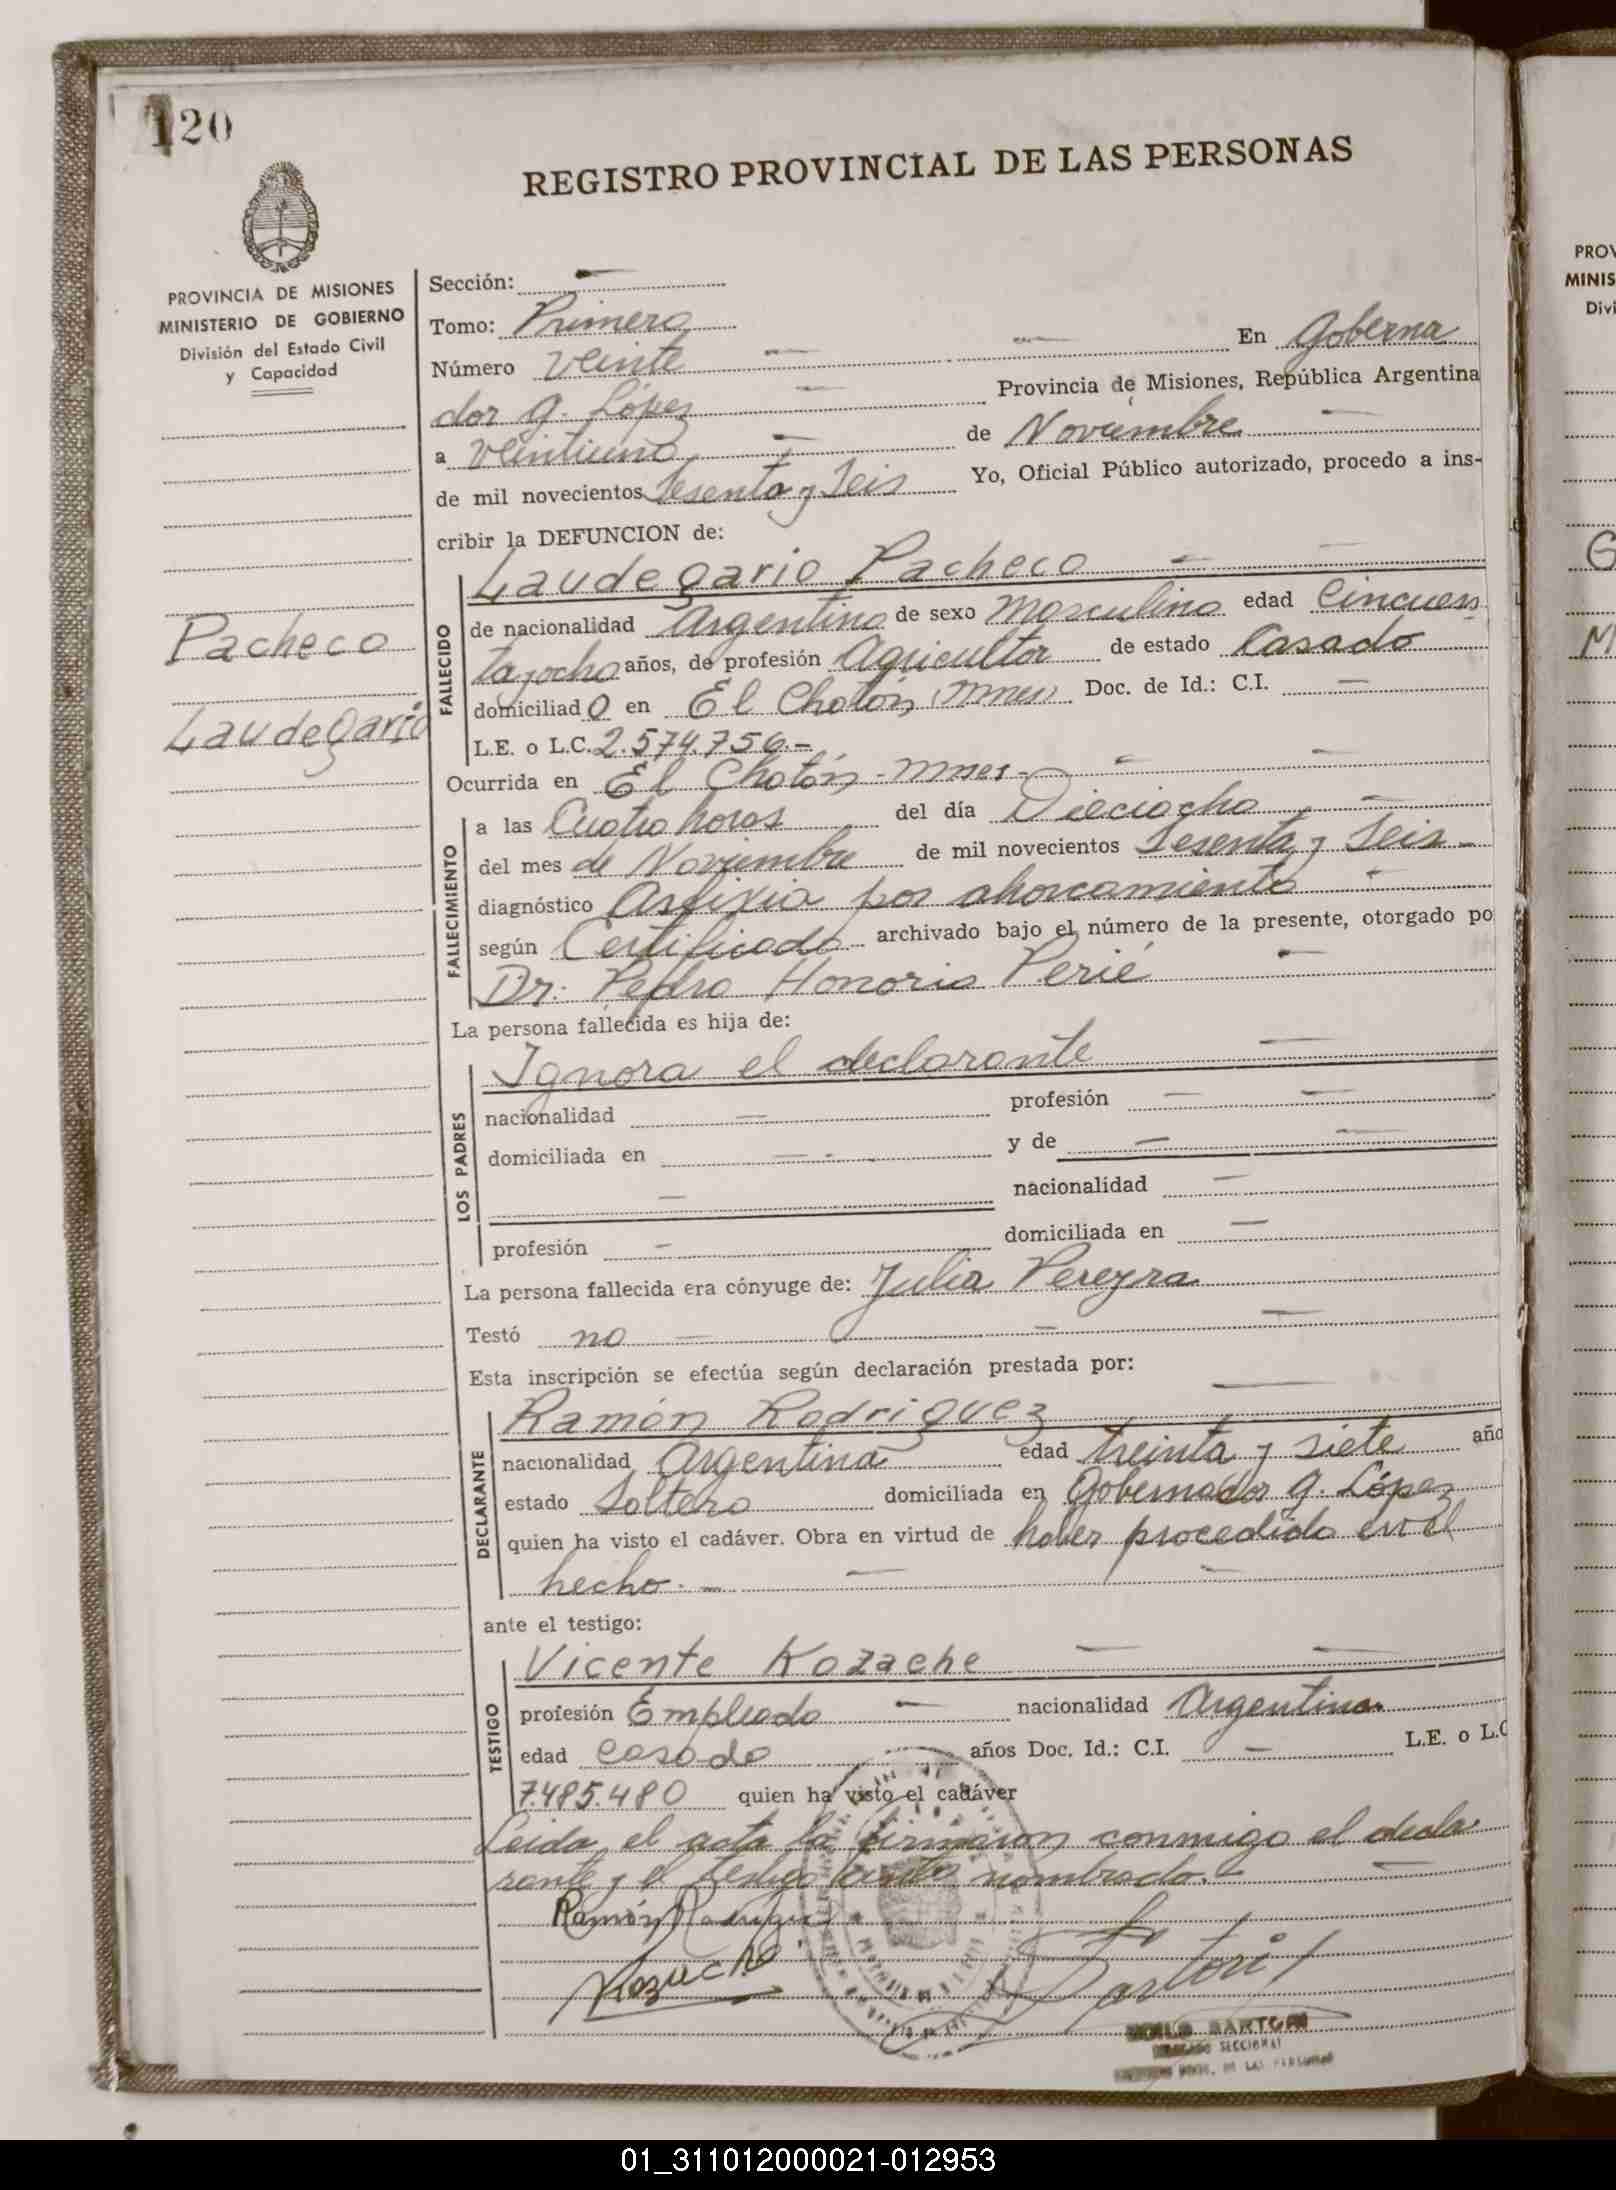 120
REGISTRO PROVINCIAL DE LAS PERSONAS
PROVINCIA DE MISIONES
MINISTERIO DE GOBIERNO
División del Estado Civil
y Capacidad
Pacheco
Laudegario
Sección: —
Tomo: Primero
Número veinte — — En Goberna
dor G. López — Provincia de Misiones, República Argentina
a veintiuno — de Noviembre —
de mil novecientos sesenta y seis Yo, Oficial Público autorizado, procedo a ins-
cribir la DEFUNCION de:
Laudegario Pacheco — —
FALLECIDO
de nacionalidad Argentino de sexo masculino edad Cincuen
tayocho años, de profesión Agricultor de estado Casado
domiciliado en El Chotón, (Mnes) Doc. de Id.: C.I. —
L.E. o L.C. 2.574.756.-
Ocurrida en El Chotón - Mnes - — —
FALLECIMIENTO
a las Cuatro horas del día Dieciocho —
del mes de Noviembre de mil novecientos sesenta y seis -
diagnóstico Asfixia por ahorcamiento -
según Certificado archivado bajo el número de la presente, otorgado po
Dr. Pedro Honorio Perié —
La persona fallecida es hija de:
Ignora el declarante —
LOS PADRES
nacionalidad — profesión — —
domiciliada en — - y de — —
— nacionalidad —
profesión - domiciliada en —
La persona fallecida era cónyuge de: Julia Pereyra
Testó no — — —
Esta inscripción se efectúa según declaración prestada por:
Ramón Rodriguez
DECLARANTE
nacionalidad Argentina edad treinta y siete año
estado Soltero domiciliada en Gobernador G. López
quien ha visto el cadáver. Obra en virtud de haber procedido en el
hecho. — — —
ante el testigo:
Vicente Kozache — —
TESTIGO
profesión Empleado — nacionalidad Argentina
edad casado años Doc. Id.: C.I. — L.E. o L.C
7.485.480 quien ha visto el cadáver
Leida el acta la firmaron conmigo el decla
rante y el testigo nombrado. —
Ramón Rodriguez
Kozache
Sartori
SARTORI
SECCIONAL
DE LAS PERSONAS
PROV
MINIS
Divi
G
M
01_311012000021-012953